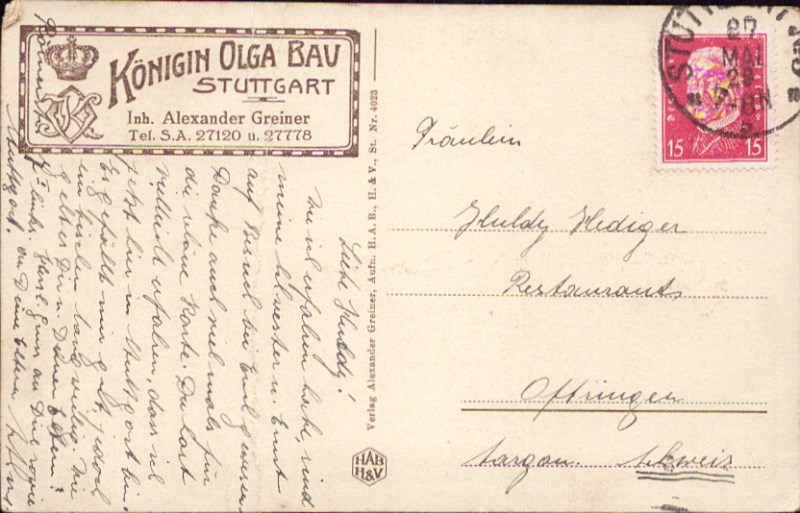 KÖNIGIN OLGA BAU
STUTTGART
Inh. Alexander Greiner
Tel. S.A. 27120 u. 27778
Liebe Huldy!
Wie ich erfahren habe, sind
meine Schwester u. Ernst
auf Besuch bei Emil gewesen.
Danke auch vielmals für
die schöne Karte. Du hast
vielleicht erfahren, dass ich
jetzt hier in Stuttgart bin.
Es gefällt mir gut, jedoch
ein bischen langweilig. Wie
geht es Dir u. Deinen Eltern?
Herzl. Gruss an Dich sowie
an Deine Eltern
Stuttgart.
Verlag Alexander Greiner, Aufn. H.A.B., H. & V., St. Nr. 4023
HAB
H&V
STUTTGART
27
MAI
15 15
Fräulein
Huldy Hediger
Restaurants
Oftringen
Aargau. Schweiz